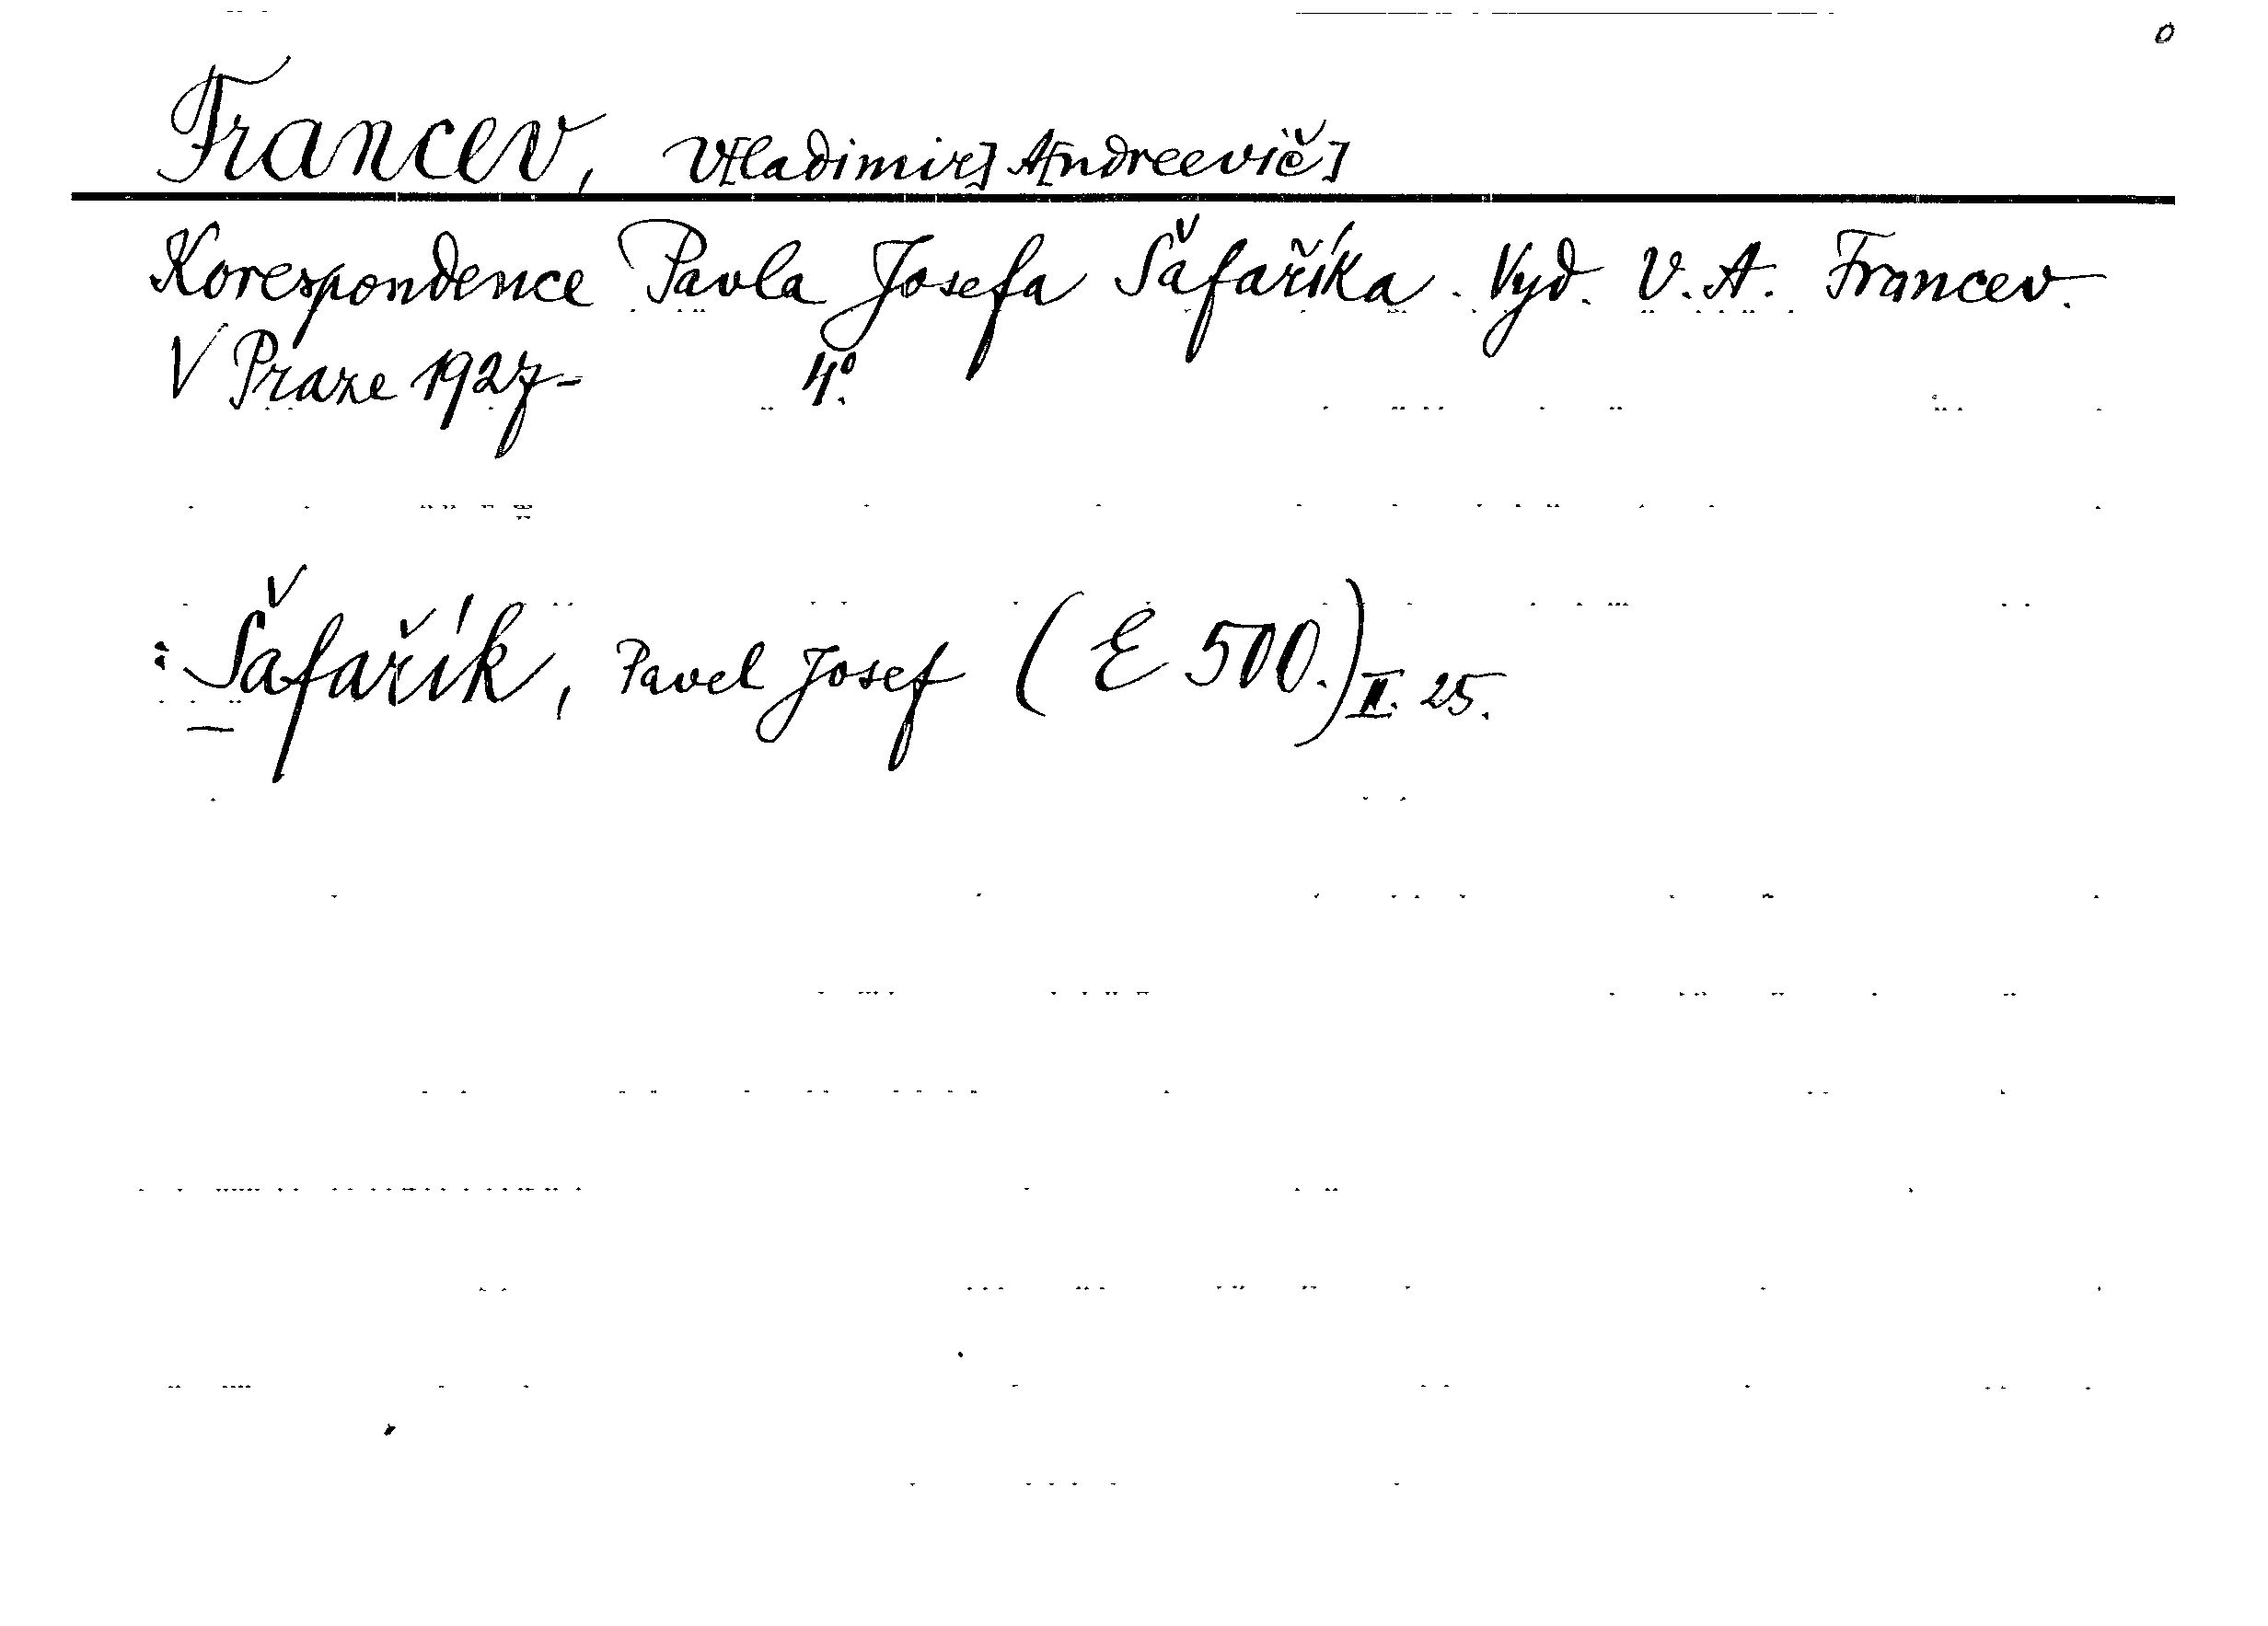 o
Francev, V[ladimir] A[ndreevič]
Korespondence Pavla Josefa Šafaříka. Vyd. V. A. Francev.
V Praze 1927- 4º.
: Šafařík, Pavel Josef (E 500.) II. 25.